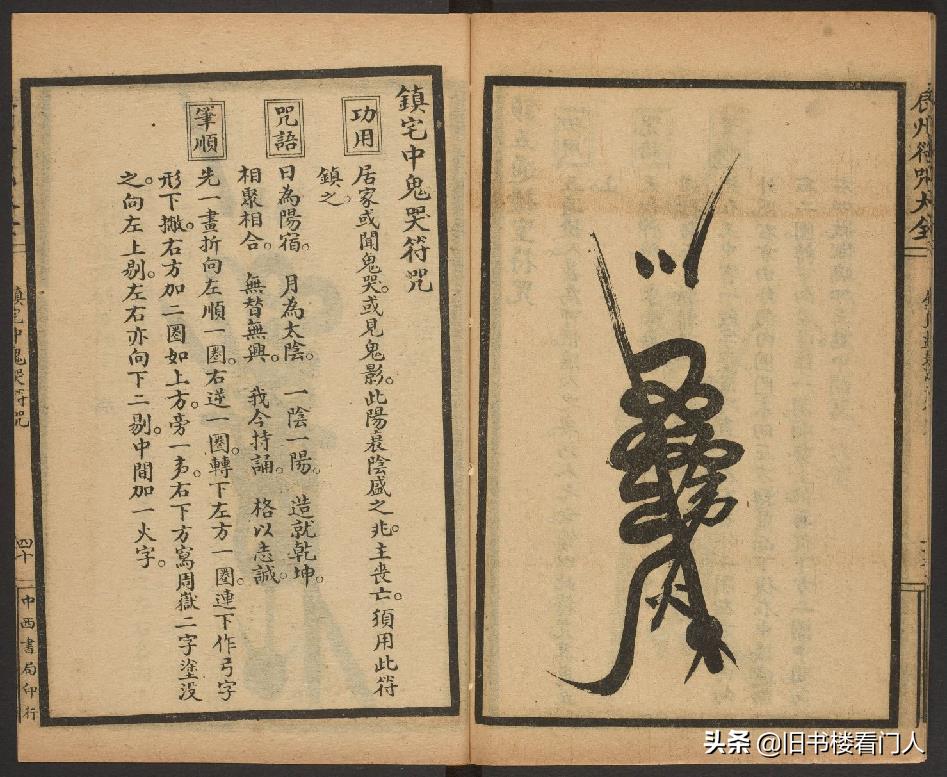 辰州符咒大全
鎮宅中鬼哭符咒
功用
居家或聞鬼哭。或見鬼影。此陽衰陰盛之兆。主喪亡。須用此符
鎮之。
咒語
日為陽宿。 月為太陰。 一陰一陽。 造就乾坤。
相聚相合。 無替無興。 我今持誦。 格以志誠。
筆順
先一畫折向左順一圈。右逆一圈。轉下左方一圈。連下作弓字
形下撇。右方加二圈如上方。旁一夯。右下方寫周嶽二字塗沒
之。向左上剔。左右亦向下二剔。中間加一火字。
鎮宅中鬼哭符咒
四十
中西書局印行
头条 @旧书楼看门人